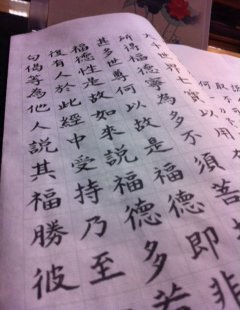 大千世界七寶以用
所得福德寧為多不須菩
甚多世尊何以故是福德即非
福德性是故如來說福德多若
復有人於此經中受持乃至
句偈等為他人說其福勝彼